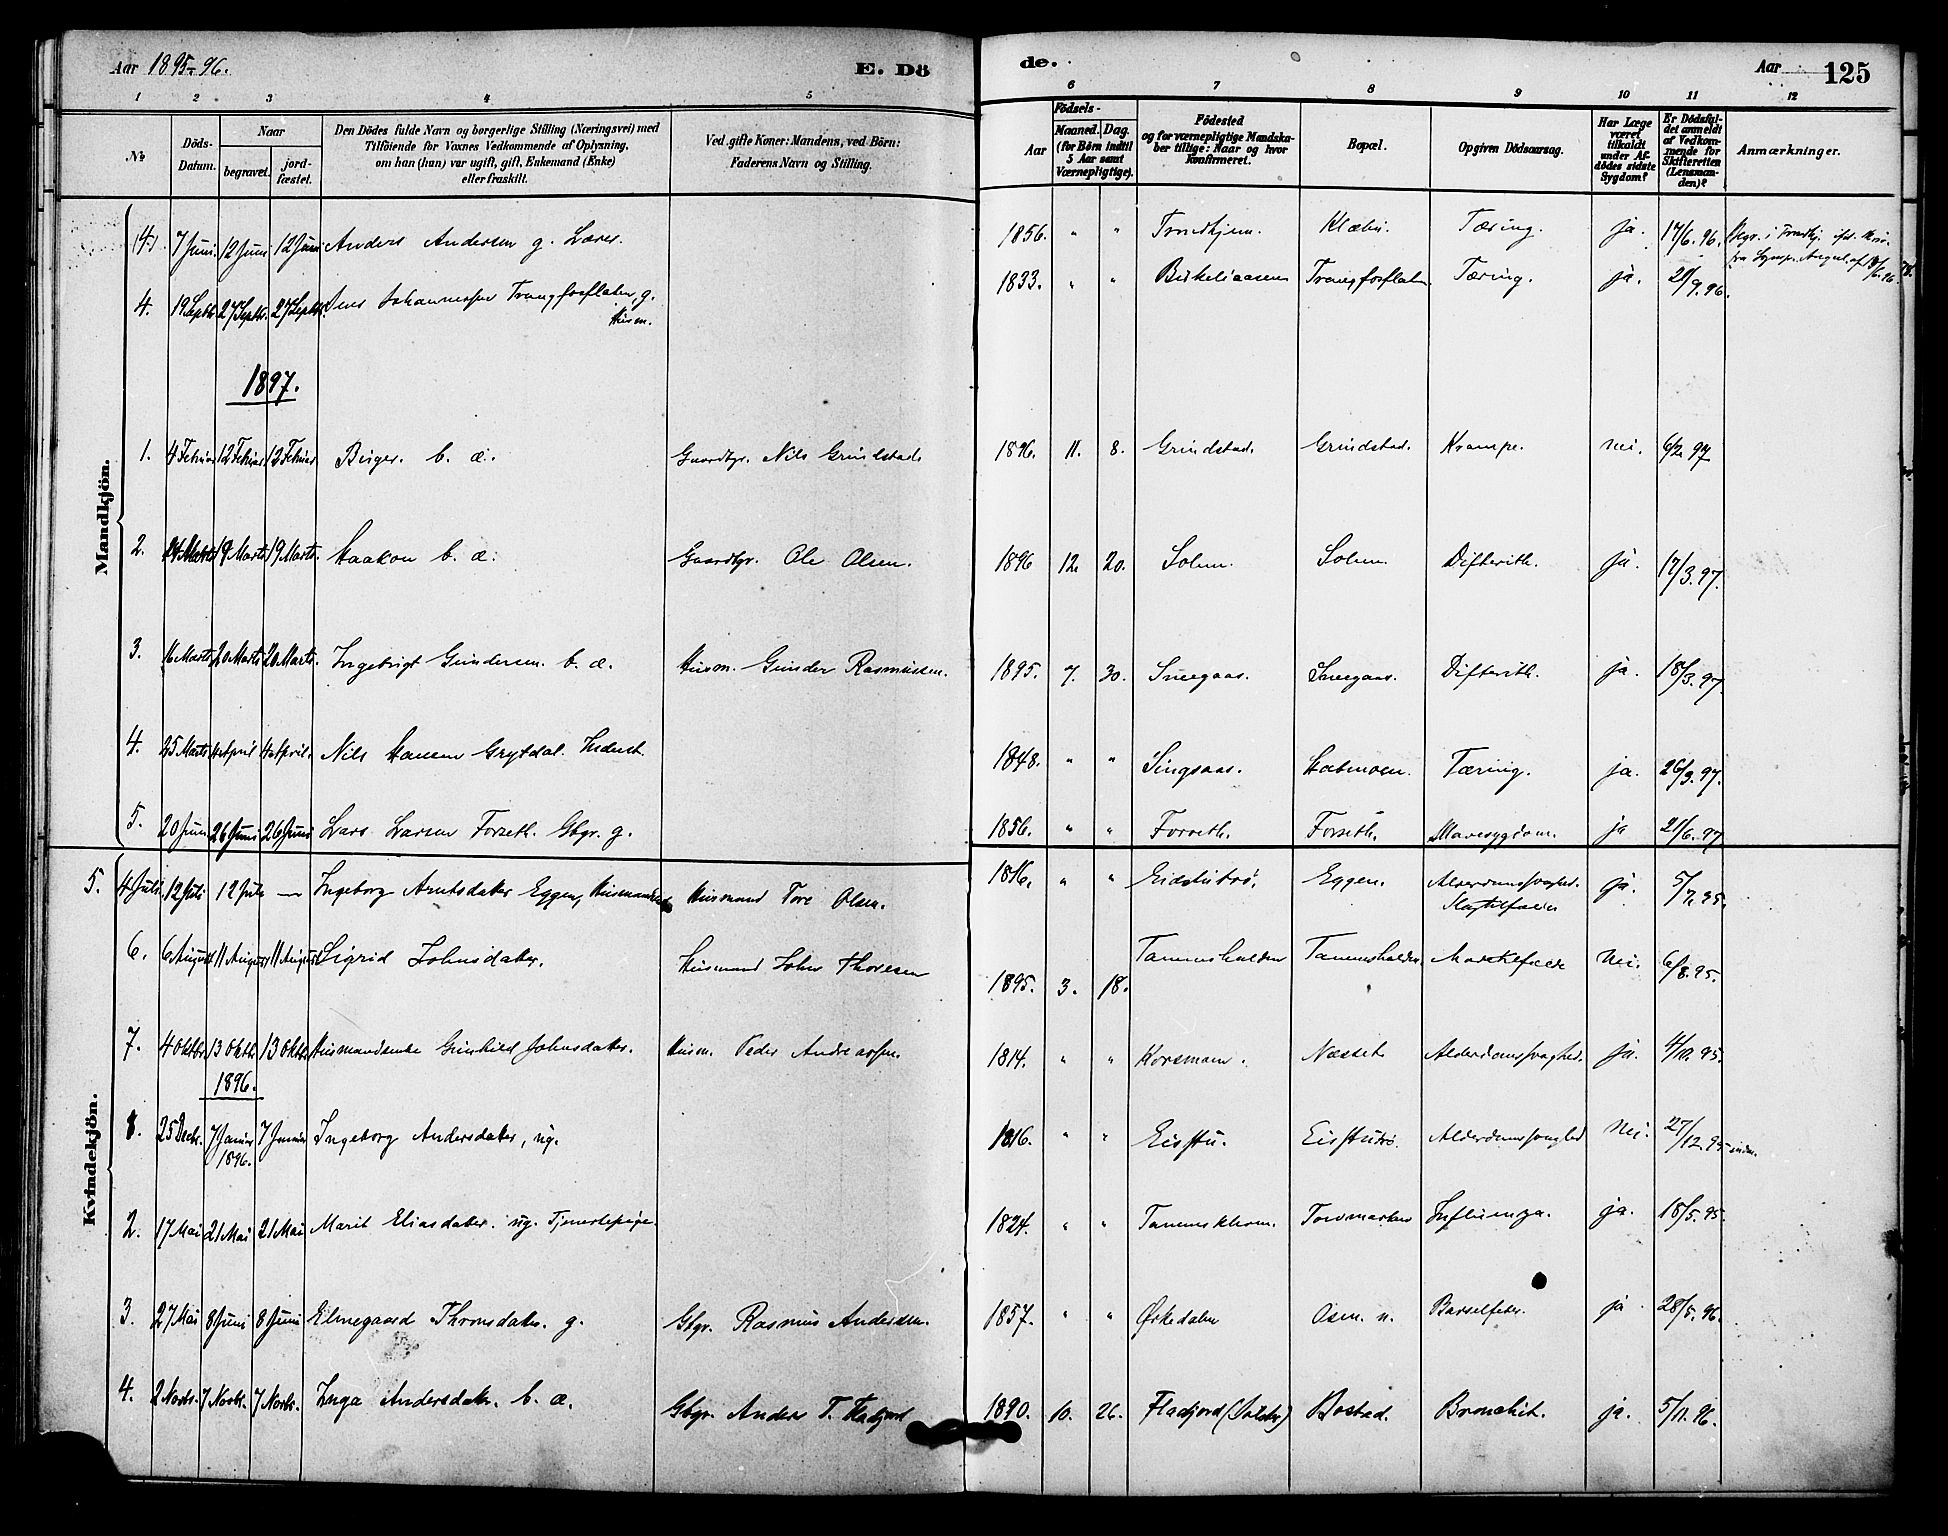 Aar 1895-96.
E. Dö
de.
Aar
125
1 2 3 4 5 6 7 8 9 10 11 12
№
Döds-Datum.
Naar
begravet.
jord-fæstet.
Den Dödes fulde Navn og borgerlige Stilling (Næringsvei) med
Tilföiende for Voxnes Vedkommende af Oplysning,
om han (hun) var ugift, gift, Enkemand (Enke)
eller fraskilt.
Ved gifte Koner: Mandens, ved Börn:
Faderens Navn og Stilling.
Födsels-
Aar
Maaned. Dag.
(for Börn indtil
5 Aar samt
Værnepligtige).
Födested
og for værnepligtige Mandska-
ber tillige: Naar og hvor
Konfirmeret.
Bopæl.
Opgiven Dödsaarsag.
Har Læge
været
tilkaldt
under Af-
dödes sidste
Sygdom?
Er Dödsfal-
det anmeldt
af Vedkom-
mende for
Skifteretten
(Lensman-
den)?
Anmærkninger.
Mandkjön.
(4). 7 Juni. 12 Juni 12 Juni Anders Andersen g. Lærer. 1856. " " Trondhjem. Klæbu. Tæring. ja. 17/6. 96.
4. 19 Septbr. 27 Septbr. 27 Septbr. Jens Johannessen Trangfosflaten g. Husm. 1833. " " Birkeliaasen Trangfosflaten Tæring. ja. 21/9. 96.
1897.
1. 4 Februar 12 Februar 12 Februar Birger. b. æ. Gaardbgr. Nils Grindstad 1896. 11. 8. Grindstad. Grindstad. Krampe. nei. 6/2. 97
2. 14 Marts 19 Marts 19 Marts. Haakon b. æ. Gaardbgr. Ole Olsen. 1896 12. 20. Solem. Solem. Difterith. ja. 17/3. 97.
3. 16 Marts 20 Marts 20 Marts. Ingebrigt Gundersen. b. æ. Husm. Gunder Rasmussen. 1895. 7. 30. Sneegaas. Sneegaas. Difterith. ja. 18/3. 97
4. 25 Marts 4 April 4 April. Nils Hansen Grytdal. Inderst 1848. " " Singsaas. Tæring. ja. 26/3. 97.
5. 20 Juni 26 Juni 26 Juni Lars Larsen Forseth. Gbgr. g. 1856. " " Forseth. Forseth. Mavesygdom. ja 21/6. 97
Kvindekjön.
5. 4 Juli 12 Juli 12 Juli — Ingeborg Arntsdater Eggen, Husmand Tore Olsen. 1816. " " Eidstubrø. Eggen. Alderdomssvaghed. ja. 5/7. 95.
6. 6 August 11 August 11 August Sigrid Johnsdater. Husmand John Thoresen 1895. 3. 18. Tanemshalden Tanemshalden. nei. 6/8. 95.
7. 4 Oktbr. 13 Oktbr. 13 Oktbr. Husmandsenke Gunhild Johnsdater. Husm. Peder Andreassen 1814. " " Korsmoen. Næsset Alderdomssvaghed. ja. 4/10. 95.
1896.
8. 25 Decbr. 7 Januar 1896. 7 Januar Ingeborg Andersdater, ug. 1816. " " Eisstu. Eisstubrø. Alderdomssvaghed nei. 27/12. 95
2. 17 Mai 21 Mai 21 Mai Marit Eliasdater. ug. Tjenestepige. 1824. " " Tanemskleven. Torvmarken Influenza. ja. 18/5. 95.
3. 27 Mai 8 Juni 8 Juni Elinegaard Thronsdater. g. Gbgr. Rasmus Andersen. 1857. " " Ørkedalen Osen. n. Barselfeber. ja. 28/5. 96.
4. 2 Novbr. 7 Novbr. 7 Novbr. Inga Andersdater. b. æ. Gbgr. Anders T. Fladjord 1890. 10. 26. Fladjord Bostad. Bronchit. ja. 5/11. 96.